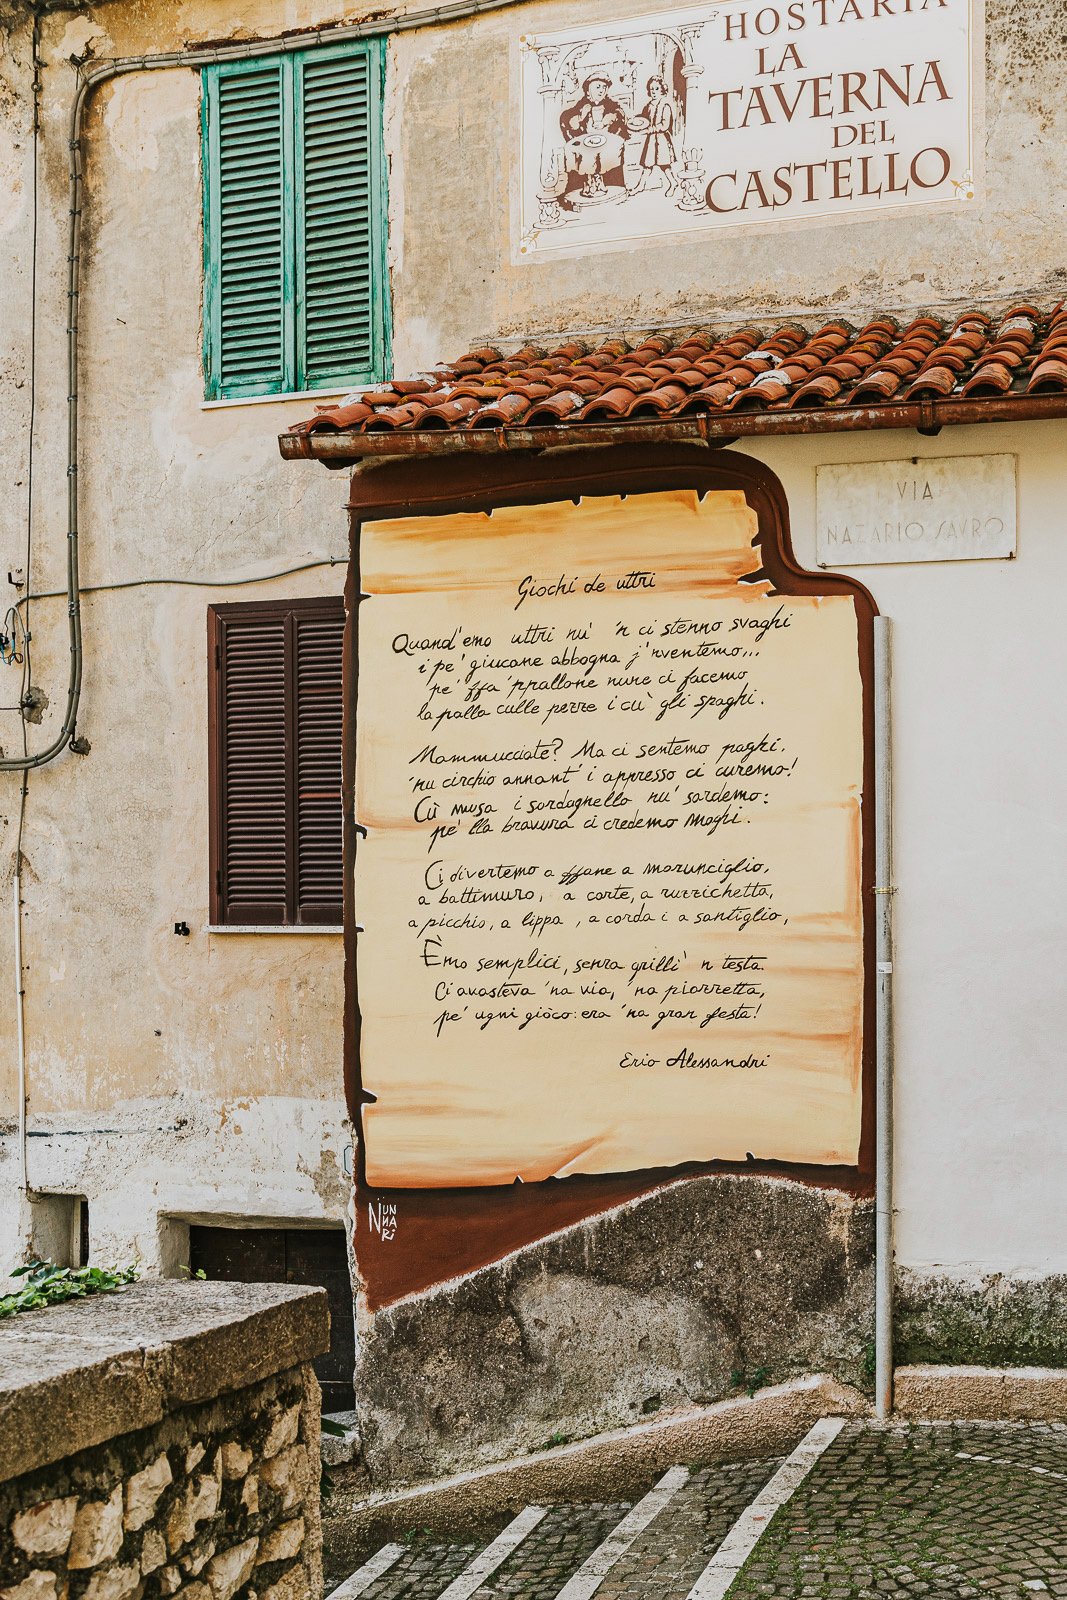 HOSTARIA
LA
TAVERNA
DEL
CASTELLO
VIA
NAZARIO SAURO
Giochi de uttri
Quand'emo uttri nu' 'n ci stenno svaghi
i pe' giucane abbogna j' 'nventemo...
pe' ffa 'ppallone nune ci facemo
la palla culle pezze i cù gli spaghi.
Mammucciate? Ma ci sentemo paghi.
'nu circhio annant' i appresso ci curemo!
Cù musa i sardagnello nu' sardemo:
pe' lla bravura ci credemo maghi.
Ci divertemo a ffane a marunciglio,
a battimuro, a corte, a ruzzichetta,
a picchio, a lippa, a corda i a santiglio,
Èmo semplici, senza grilli 'n testa.
Ci avasteva 'na via, 'na piazzetta,
pe' ugni giòco: era 'na gran festa!
Erio Alessandri
NUNNARI